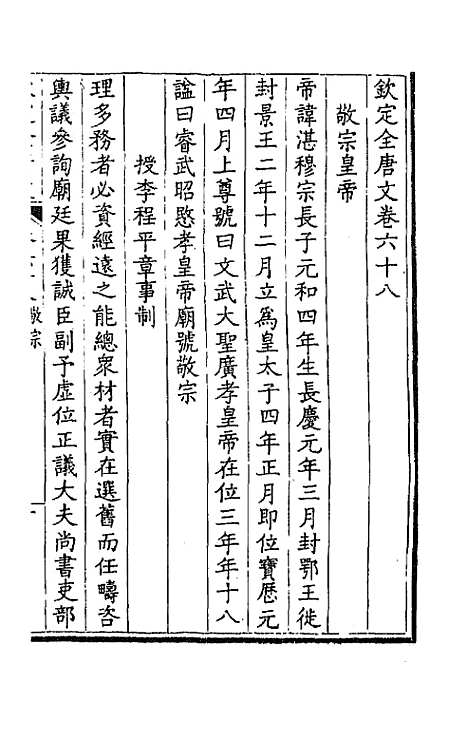 欽定全唐文卷六十八
敬宗皇帝
帝諱湛穆宗長子元和四年生長慶元年三月封鄂王徙
封景王二年十二月立為皇太子四年正月即位寶歷元
年四月上尊號曰文武大聖廣孝皇帝在位三年年十八
諡曰睿武昭愍孝皇帝廟號敬宗
授李程平章事制
理多務者必資經遠之能總衆材者實在選舊而任疇咨
輿議參詢廟廷果獲誠臣副予虛位正議大夫尚書吏部
敬宗